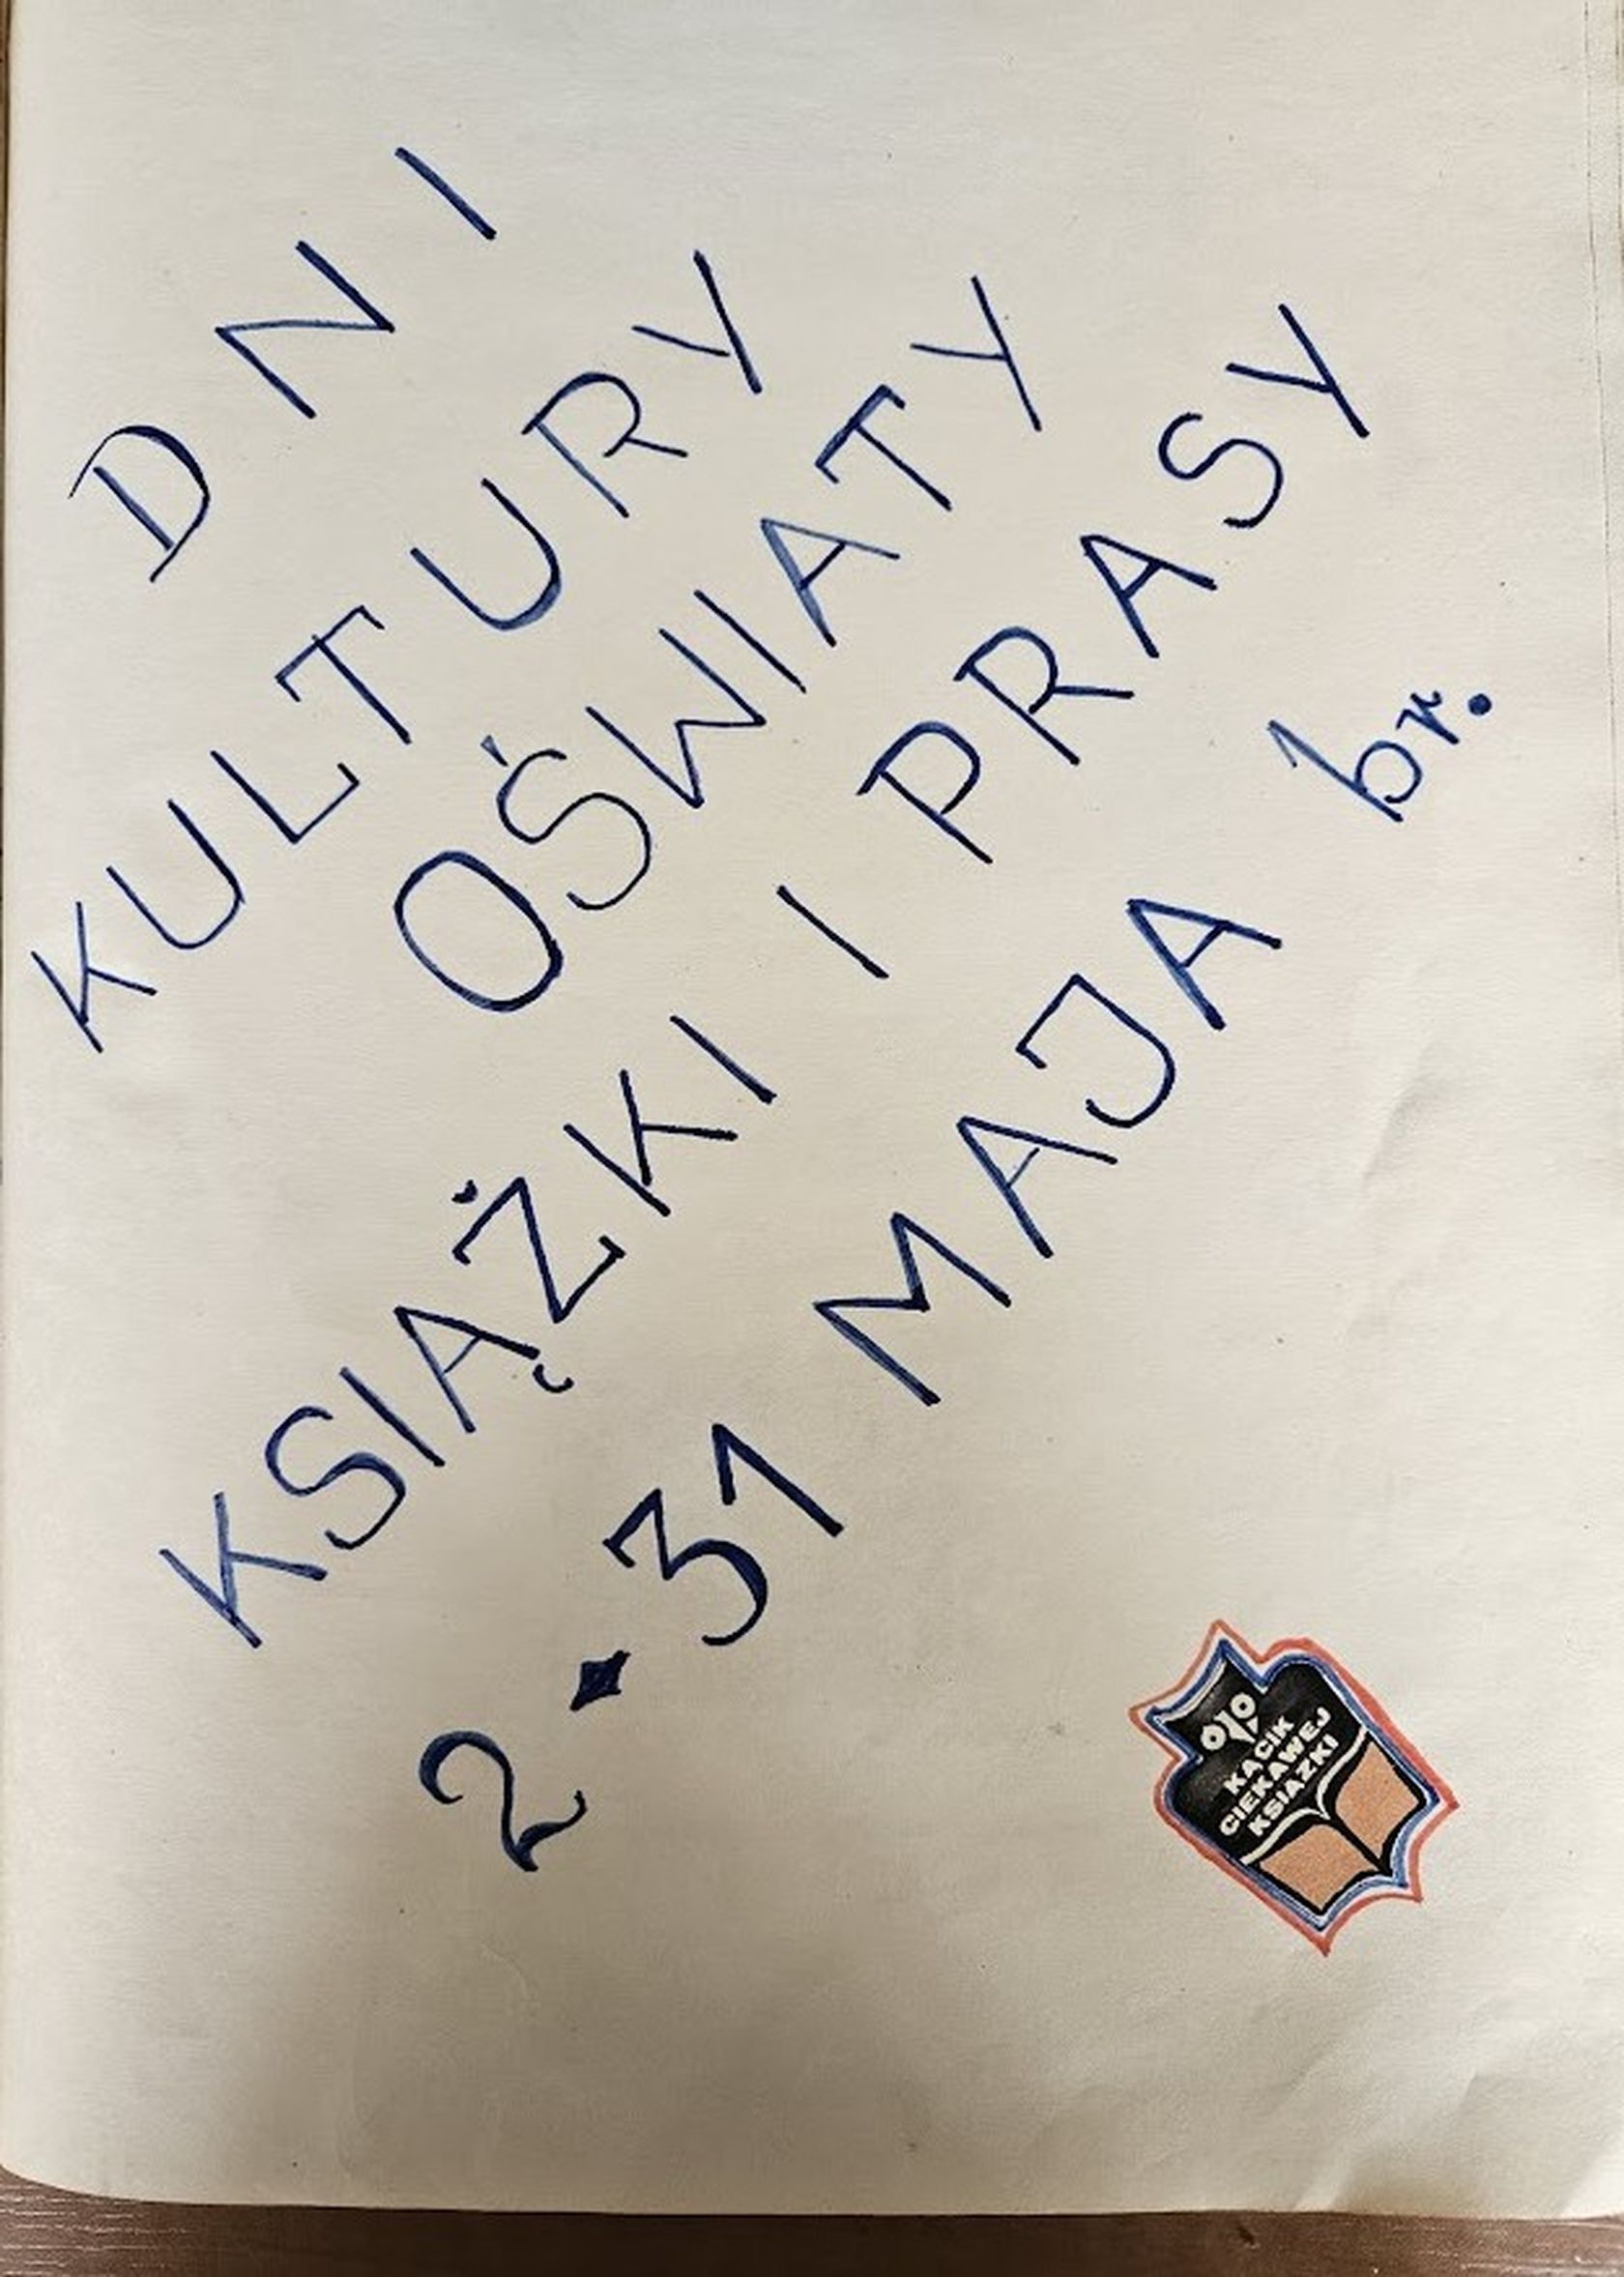 DNI
KULTURY
OŚWIATY
KSIĄŻKI I PRASY
2 ♦ 31 MAJA br.
KĄCIK
CIEKAWEJ
KSIĄŻKI